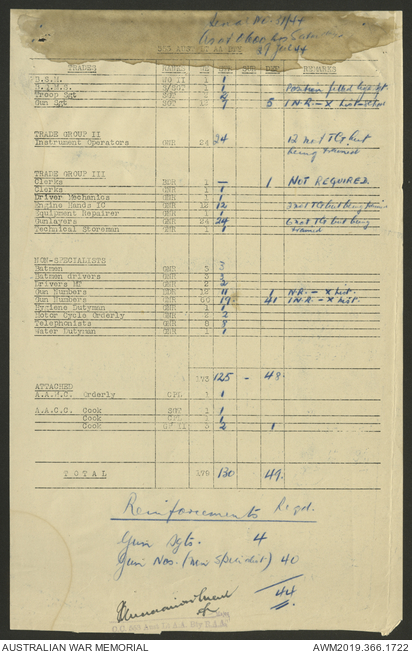 29 Jul 44
TRADES RANKS REMARKS
B.S.M. WO II 1 1
Troop Sgt SGT 2 2
Gun Sgt 7 5 1 N.R. - X list
TRADE GROUP II
Instrument Operators GNR 24 24 12 not TGt but
being trained
TRADE GROUP III
Clerks BDR 1 — 1 NOT REQUIRED.
Clerks GNR 1 1
Driver Mechanics GNR 1 1
Engine Hands IC GNR 12 12 3 not TGt but being trained
Equipment Repairer GNR 1 1
Gunlayers GNR 24 24 6 not TGt but being
trained
Technical Storeman GNR 1 1
NON-SPECIALISTS
Batmen GNR 3 3
Batmen drivers GNR 3 3
Drivers MT GNR 2 2
Gun Numbers BDR 12 11 1 N.R. - X list.
Gun Numbers GNR 60 19 41 1 N.R. - X list.
Hygiene Dutyman GNR 1 1
Motor Cycle Orderly GNR 2 2
Telephonists GNR 8 8
Water Dutyman GNR 1 1
173 125 - 48
ATTACHED
A.A.M.C. Orderly CPL 1 1
A.A.C.C. Cook SGT 1 1
Cook CPL 1 1
Cook 3 2 1
TOTAL 179 130 49
Reinforcements Reqd.
Gun Sgts. 4
Gun Nos. (Non Specialist) 40
44
AUSTRALIAN WAR MEMORIAL AWM2019.366.1722